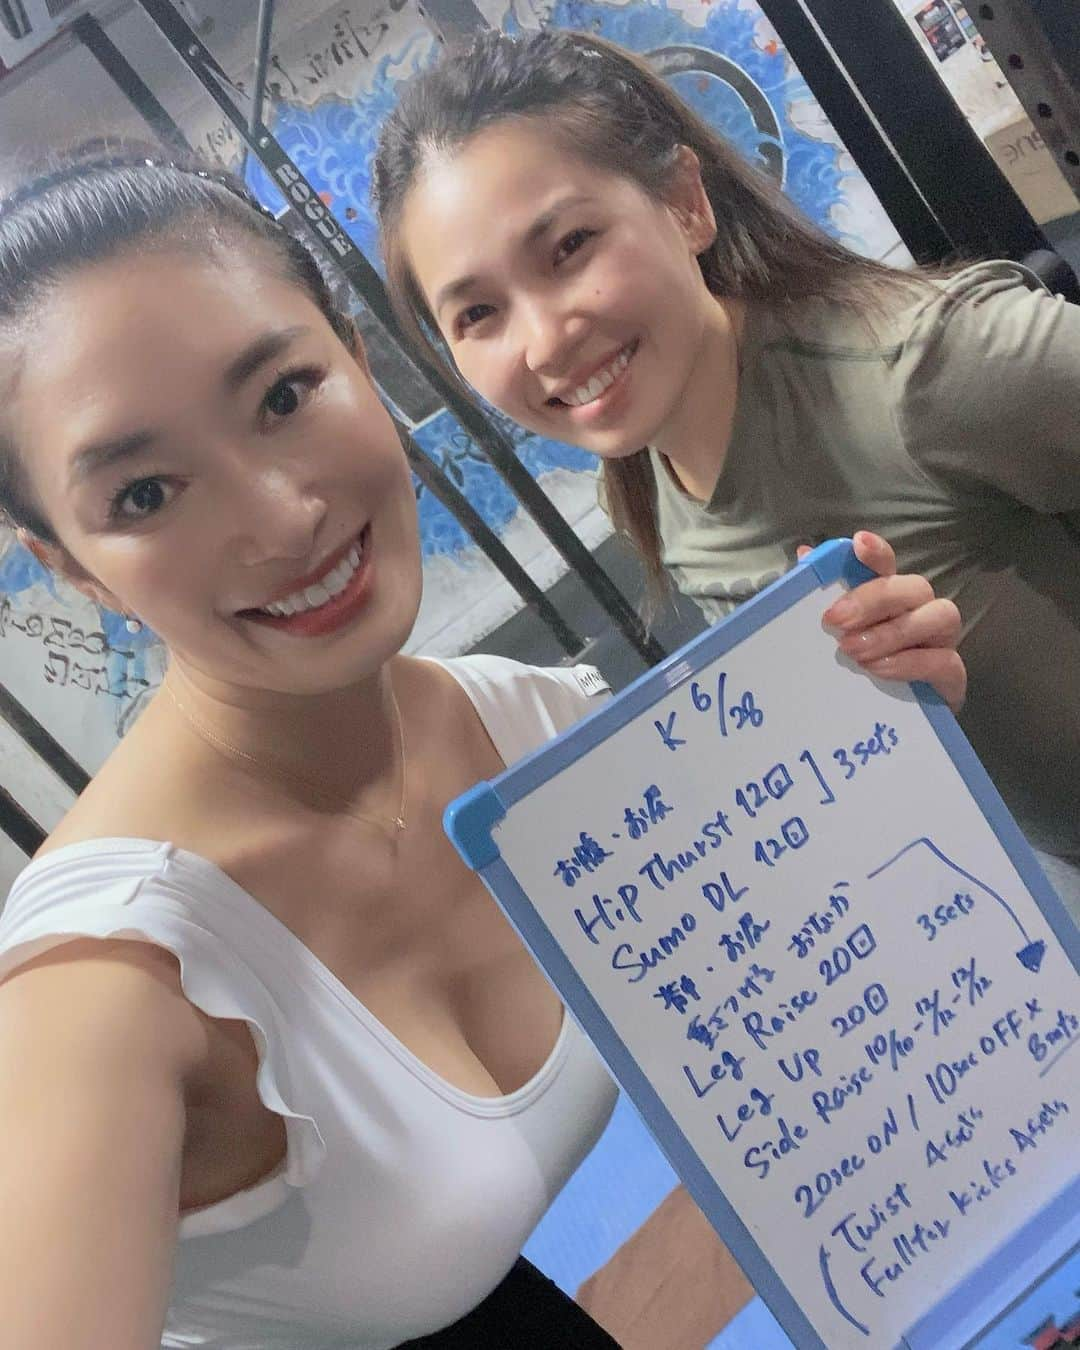 ROGUE
MIND
K 6/28
お腹・お尻
Hip Thurst 12回 ] 3sets
Sumo DL 12回
背中・お尻
重さつける おなか
Leg Raise 20回 3sets
Leg UP 20回
Side Raise 10/10-12/12-12/12
20sec ON / 10sec OFF × 8sets
Twist 4sets
Fullter kicks 4sets